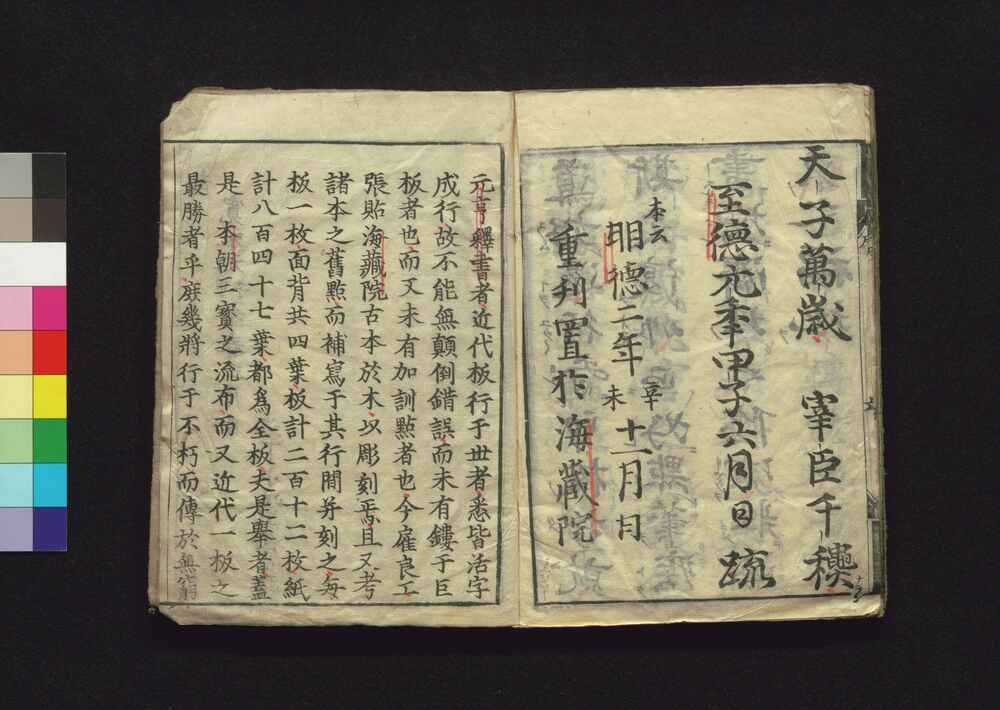 天子萬歲　宰臣千穐
至德元年甲子六月日　疏
本云
明德二年辛未十一月日
重刊置於海藏院
元亨釋書者近代板行于世者悉皆活字
成行故不能無顛倒錯誤而未有鏤于巨
板者也而又未有加訓點者也今雇良工
張貼海藏院古本於木以彫刻焉且又考
諸本之舊點而補寫于其行間并刻之每
板一枚面背共四葉板計二百十二枚紙
計八百四十七葉都爲全板夫是舉者蓋
是　本朝三寶之流布而又近代一板之
最勝者乎庶幾將行于不朽而傳於無窮